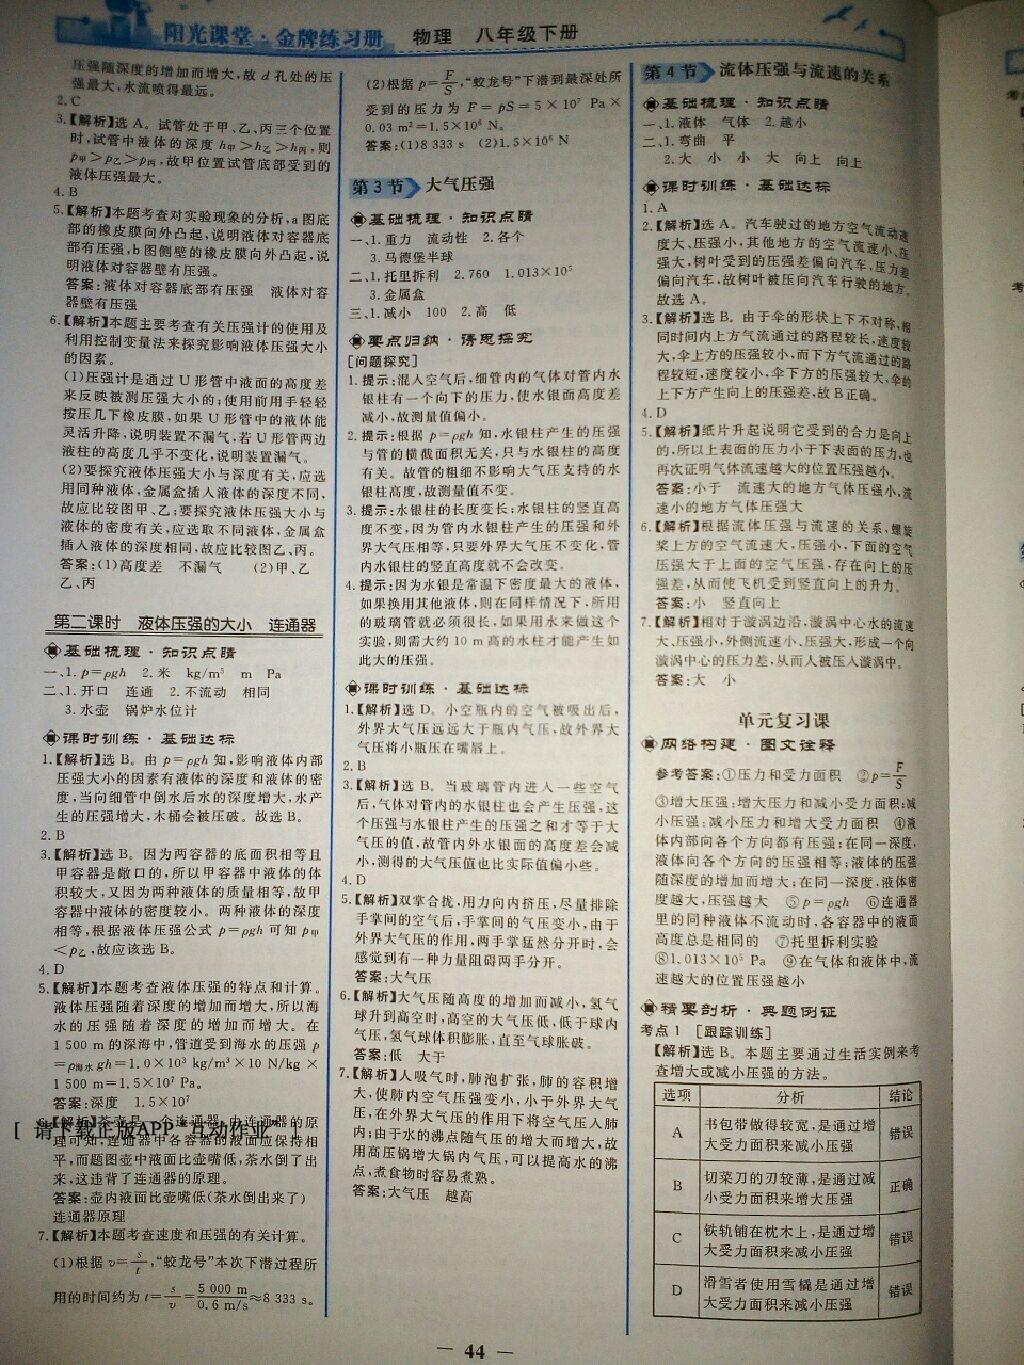 阳光课堂·金牌练习册 物理 八年级下册
压强随深度的增加而增大,故d孔处的压
强最大,水流喷得最远。
2.C
3.【解析】选A。试管处于甲、乙、丙三个位置
时,试管中液体的深度h甲>h乙>h丙,则
p甲>p乙>p丙,故甲位置试管底部受到的
液体压强最大。
4.B
5.【解析】本题考查对实验现象的分析,a图底
部的橡皮膜向外凸起,说明液体对容器底
部有压强,b图侧壁的橡皮膜向外凸起,说
明液体对容器壁有压强。
答案:液体对容器底部有压强 液体对容
器壁有压强
6.【解析】本题主要考查有关压强计的使用及
利用控制变量法来探究影响液体压强大小
的因素。
(1)压强计是通过U形管中液面的高度差
来反映被测压强大小的;使用前用手轻轻
按压几下橡皮膜,如果U形管中的液体能
灵活升降,说明装置不漏气,若U形管两边
液柱的高度几乎不变化,说明装置漏气。
(2)要探究液体压强大小与深度有关,应选
用同种液体,金属盒插入液体的深度不同,
故应比较图甲、乙;要探究液体压强大小与
液体的密度有关,应选取不同液体,金属盒
插入液体的深度相同,故应比较图乙、丙。
答案:(1)高度差 不漏气 (2)甲、乙
乙、丙
第二课时 液体压强的大小 连通器
基础梳理·知识点睛
一、1.p=ρgh 2.米 kg/m³ m Pa
二、1.开口 连通 2.不流动 相同
3.水壶 锅炉水位计
课时训练·基础达标
1.【解析】选B。由p=ρgh知,影响液体内部
压强大小的因素有液体的深度和液体的密
度,当向细管中倒水后水的深度增大,水产
生的压强增大,木桶会被压破。故选B。
2.B
3.【解析】选B。因为两容器的底面积相等且
甲容器是敞口的,所以甲容器中液体的体
积较大,又因为两种液体的质量相等,故甲
容器中液体的密度较小。两种液体的深度
相等,根据液体压强公式p=ρgh可知p甲
<p乙,故应该选B。
4.D
5.【解析】本题考查液体压强的特点和计算。
液体压强随着深度的增加而增大,所以海
水的压强随着深度的增加而增大。在
1 500 m的深海中,管道受到海水的压强p
=ρ海水gh=1.0×10³ kg/m³×10 N/kg×
1 500 m=1.5×10⁷ Pa。
答案:深度 1.5×10⁷
6.【解析】茶壶是一个连通器,由连通器的原
[ 请下载正版APP“互动作业” ]
理可知,连通器中各容器的液面应保持相
平,而题图壶中液面比壶嘴低,茶水倒了出
来,这违背了连通器的原理。
答案:壶内液面比壶嘴低(茶水倒出来了)
连通器原理
7.【解析】本题考查速度和压强的有关计算。
(1)根据v=s/t,“蛟龙号”本次下潜过程所
用的时间约为t=s/v=5 000 m/0.6 m/s≈8 333 s。
(2)根据p=F/S,“蛟龙号”下潜到最深处所
受到的压力为F=pS=5×10⁷ Pa×
0.03 m²=1.5×10⁶ N。
答案:(1)8 333 s (2)1.5×10⁶ N
第3节 大气压强
基础梳理·知识点睛
一、1.重力 流动性 2.各个
3.马德堡半球
二、1.托里拆利 2.760 1.013×10⁵
3.金属盒
三、1.减小 100 2.高 低
要点归纳·诱思探究
[问题探究]
1.提示:混入空气后,细管内的气体对管内水
银柱有一个向下的压力,使水银面高度差
减小,故测量值偏小。
2.提示:根据p=ρgh知,水银柱产生的压强
与管的横截面积无关,只与水银柱的高度
有关。故管的粗细不影响大气压支持的水
银柱高度,故测量值不变。
3.提示:水银柱的长度变长;水银柱的竖直高
度不变,因为管内水银柱产生的压强和外
界大气压相等,只要外界大气压不变化,管
内水银柱的竖直高度就不会改变。
4.提示:因为水银是常温下密度最大的液体,
如果换用其他液体,则在同样情况下,所用
的玻璃管就必须很长,如果用水来做这个
实验,则需大约10 m高的水柱才能产生如
此大的压强。
课时训练·基础达标
1.【解析】选D。小空瓶内的空气被吸出后,
外界大气压远远大于瓶内气压,故外界大
气压将小瓶压在嘴唇上。
2.B
3.【解析】选B。当玻璃管内进入一些空气
后,气体对管内的水银柱也会产生压强,这
个压强与水银柱产生的压强之和才等于大
气压的值,故管内外水银面的高度差会减
小,测得的大气压值也比实际值偏小些。
4.D
5.【解析】双掌合拢,用力向内挤压,尽量排除
手掌间的空气后,手掌间的气压变小,由于
外界大气压的作用,两手掌猛然分开时,会
感觉到有一种力量阻碍两手分开。
答案:大气压
6.【解析】大气压随高度的增加而减小,氢气
球升到高空时,高空的大气压低,低于球内
气压,氢气球体积膨胀,直至气球胀破。
答案:低 大于
7.【解析】人吸气时,肺泡扩张,肺的容积增
大,使肺内空气压强变小,小于外界大气
压,在外界大气压的作用下将空气压入肺
内;由于水的沸点随气压的增大而增大,故
用高压锅增大锅内气压,可以提高水的沸
点,煮食物时容易煮熟。
答案:大气压 越高
第4节 流体压强与流速的关系
基础梳理·知识点睛
一、1.液体 气体 2.越小
二、1.弯曲 平
2.大 小 小 大 向上 向上
课时训练·基础达标
1.A
2.【解析】选A。汽车驶过的地方空气流动速
度大、压强小,其他地方的空气流速小、压
强大,树叶受到的压强差偏向汽车,压力差
偏向汽车,故树叶被压向汽车行驶的地方。
故选A。
3.【解析】选B。由于伞的形状上下不对称,相
同时间内上方气流通过的路程较长,速度较
大,伞上方的压强较小,而下方气流通过的路
程较短,速度较小,伞下方的压强较大,伞的
上下方产生向上的压强差,故B正确。
4.D
5.【解析】纸片升起说明它受到的合力是向上
的,所以上表面的压力小于下表面的压力,也
再次证明气体流速越大的位置压强越小。
答案:小于 流速大的地方气体压强小,流
速小的地方气体压强大
6.【解析】根据流体压强与流速的关系,螺旋
桨上方的空气流速大,压强小,下面的空气
压强大于上面的空气压强,存在向上的压
强差,从而使飞机受到竖直向上的升力。
答案:小 竖直向上
7.【解析】相对于漩涡边沿,漩涡中心水的流速
大、压强小,外侧流速小、压强大,形成一个向
漩涡中心的压力差,从而人被压入漩涡中。
答案:大 小
单元复习课
网络构建·图文诠释
参考答案:①压力和受力面积 ②p=F/S
③增大压强:增大压力和减小受力面积;减
小压强:减小压力和增大受力面积 ④液
体内部向各个方向都有压强;在同一深度,
液体向各个方向的压强相等;液体的压强
随深度的增加而增大;在同一深度,液体密
度越大,压强越大 ⑤p=ρgh ⑥连通器
里的同种液体不流动时,各容器中的液面
高度总是相同的 ⑦托里拆利实验
⑧1.013×10⁵ Pa ⑨在气体和液体中,流
速越大的位置压强越小
精要剖析·典题例证
考点1 [跟踪训练]
【解析】选B。本题主要通过生活实例来考
查增大或减小压强的方法。
选项 分析 结论
A 书包带做得较宽,是通过增大受力面积来减小压强 错误
B 切菜刀的刃较薄,是通过减小受力面积来增大压强 正确
C 铁轨铺在枕木上,是通过增大受力面积来减小压强 错误
D 滑雪者使用雪橇是通过增大受力面积来减小压强 错误
— 44 —